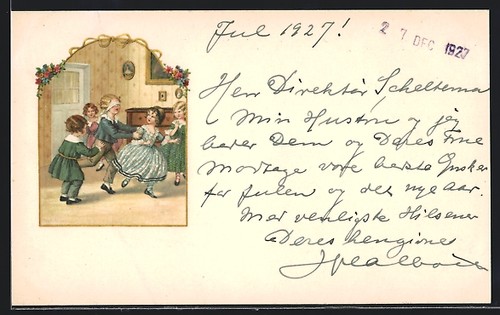 Jul 1927!
2 7 DEC 1927
Herr Direktör Scheltema
Min Hustru og jeg
beder Dem og Deres Frue
modtage vore bedste Ønsker
for Julen og det nye Aar.
Med venligste Hilsener
Deres hengivne